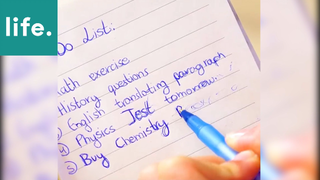 life.
Do List:
Math exercise
History questions
English translating paragraph
4) Physics Test tomorrow.
5) Buy Chemistry